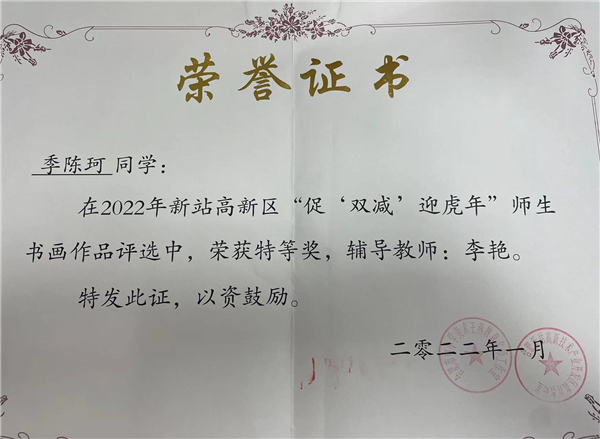 荣誉证书
季陈珂 同学：
在2022年新站高新区“促‘双减’迎虎年”师生
书画作品评选中，荣获特等奖，辅导教师：李艳。
特发此证，以资鼓励。
二零二二年一月